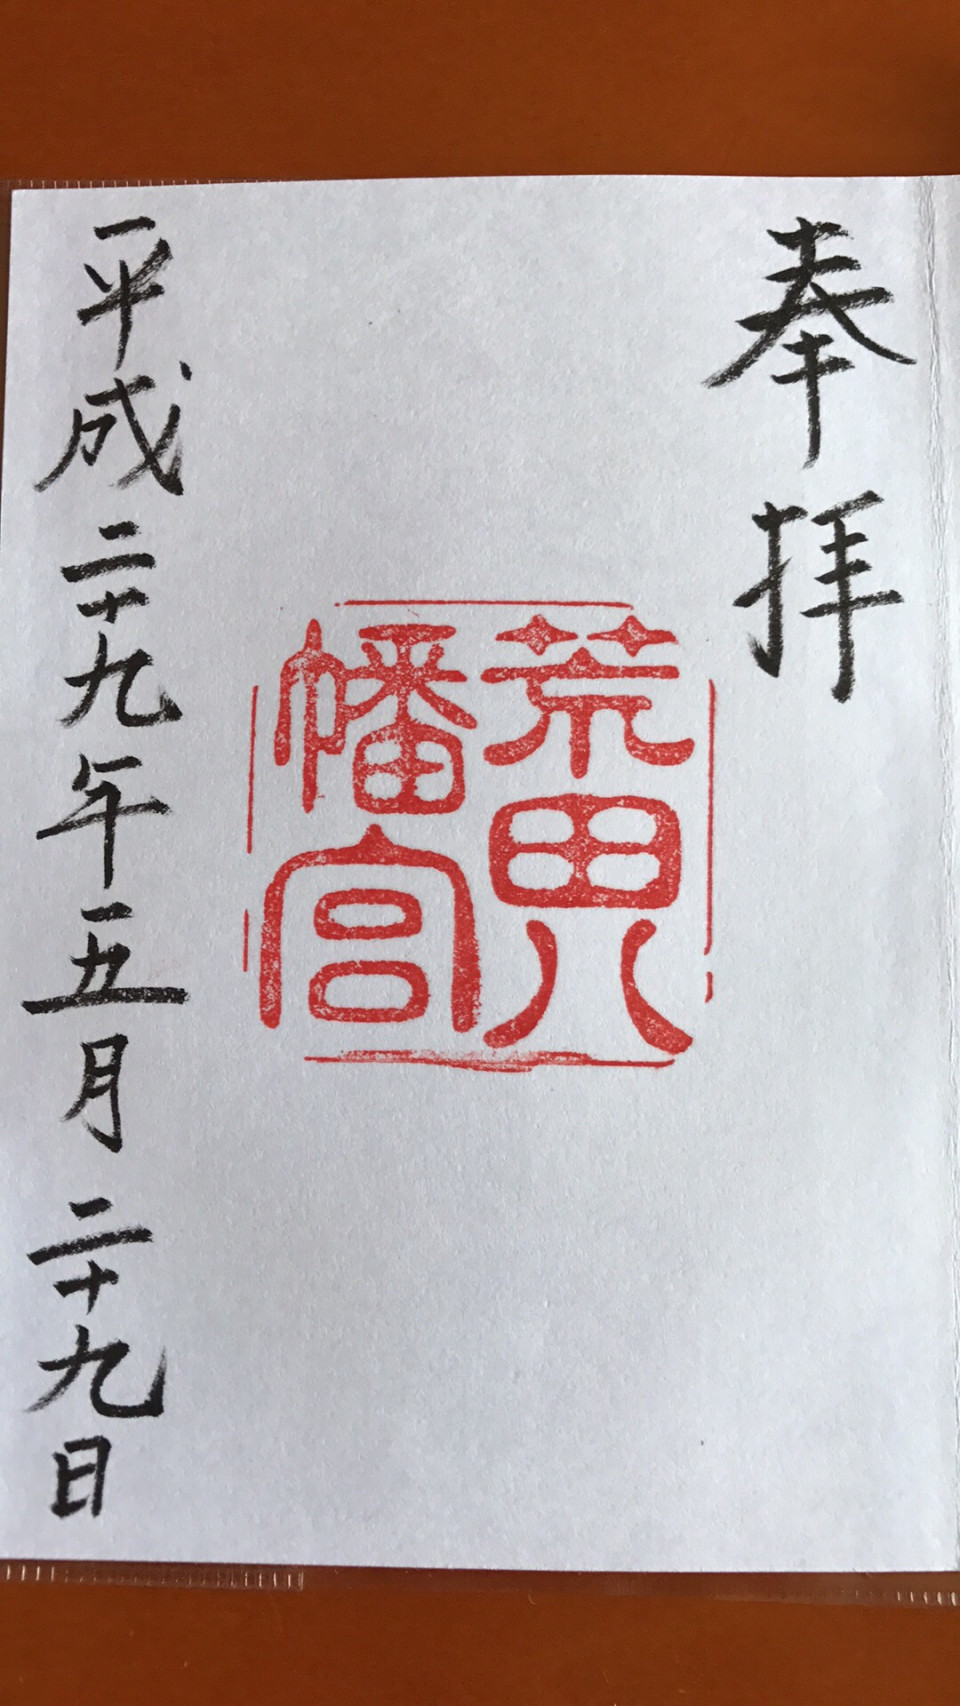 奉拝
荒田八
幡宮
平成二十九年五月二十九日